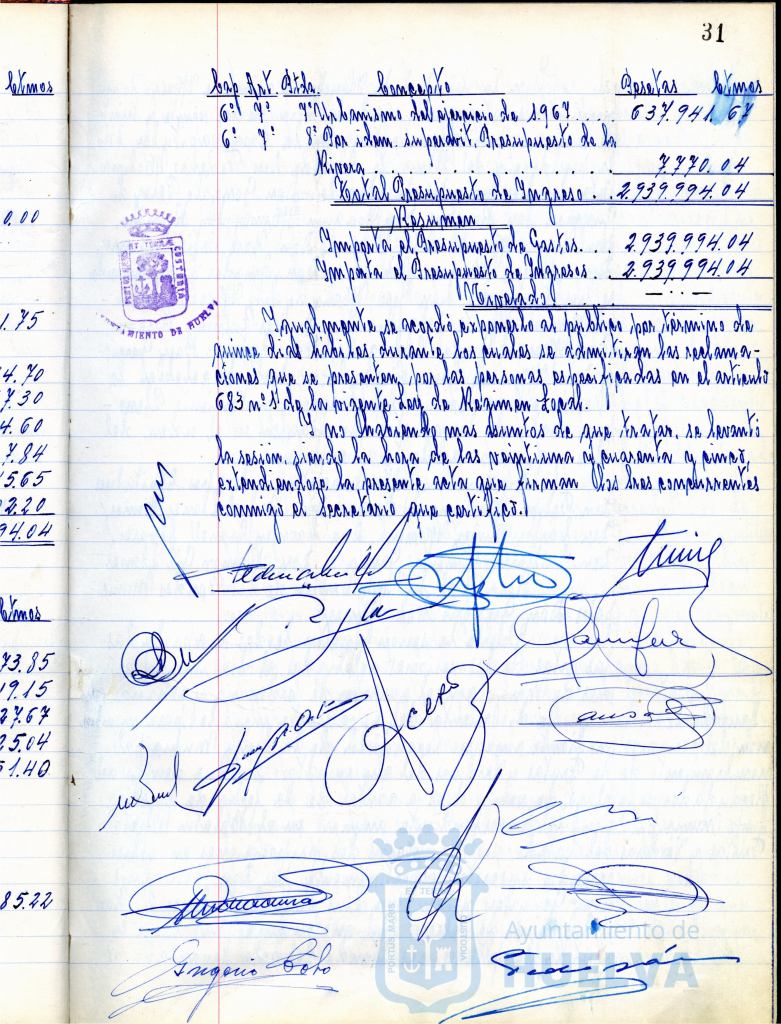 31
Ctmos
Cap Art. Ptda. Concepto Pesetas Ctmos
6º 7º 7º Urbanismo del ejercicio de 1.967 .... 637.941.67
6º 7º 8º Por idem. superávit. Presupuesto de la
Rivera ............ 7.770.04
Total Presupuesto de Ingreso . 2.939.994.04
Resumen
Importa el Presupuesto de Gastos... 2.939.994.04
Importa el Presupuesto de Ingresos.. 2.939.994.04
Nivelado ..... -.-
Igualmente se acordó exponerlo al público por término de
quince dias hábiles, durante los cuales se admitirán las reclama-
ciones que se presenten por las personas especificadas en el artículo
683 nº 1 de la vigente Ley de Régimen Local.
Y no habiendo mas asuntos de que tratar, se levantó
la sesión, siendo la hora de las veintiuna y cuarenta y cinco,
extendiendose la presente acta que firman los Sres concurrentes
conmigo el Secretario que certifico.
0.00
1.75
4.70
7.30
4.60
7.84
5.65
2.20
94.04
Ctmos
73.85
19.15
27.67
25.04
51.40
85.22
PORTUS MARIS ET TERRAE CUSTODIA
AYUNTAMIENTO DE HUELVA
Acero
Gregorio Cobo
PORTUS MARIS ET TERRAE CUSTODIA
Ayuntamiento de
HUELVA